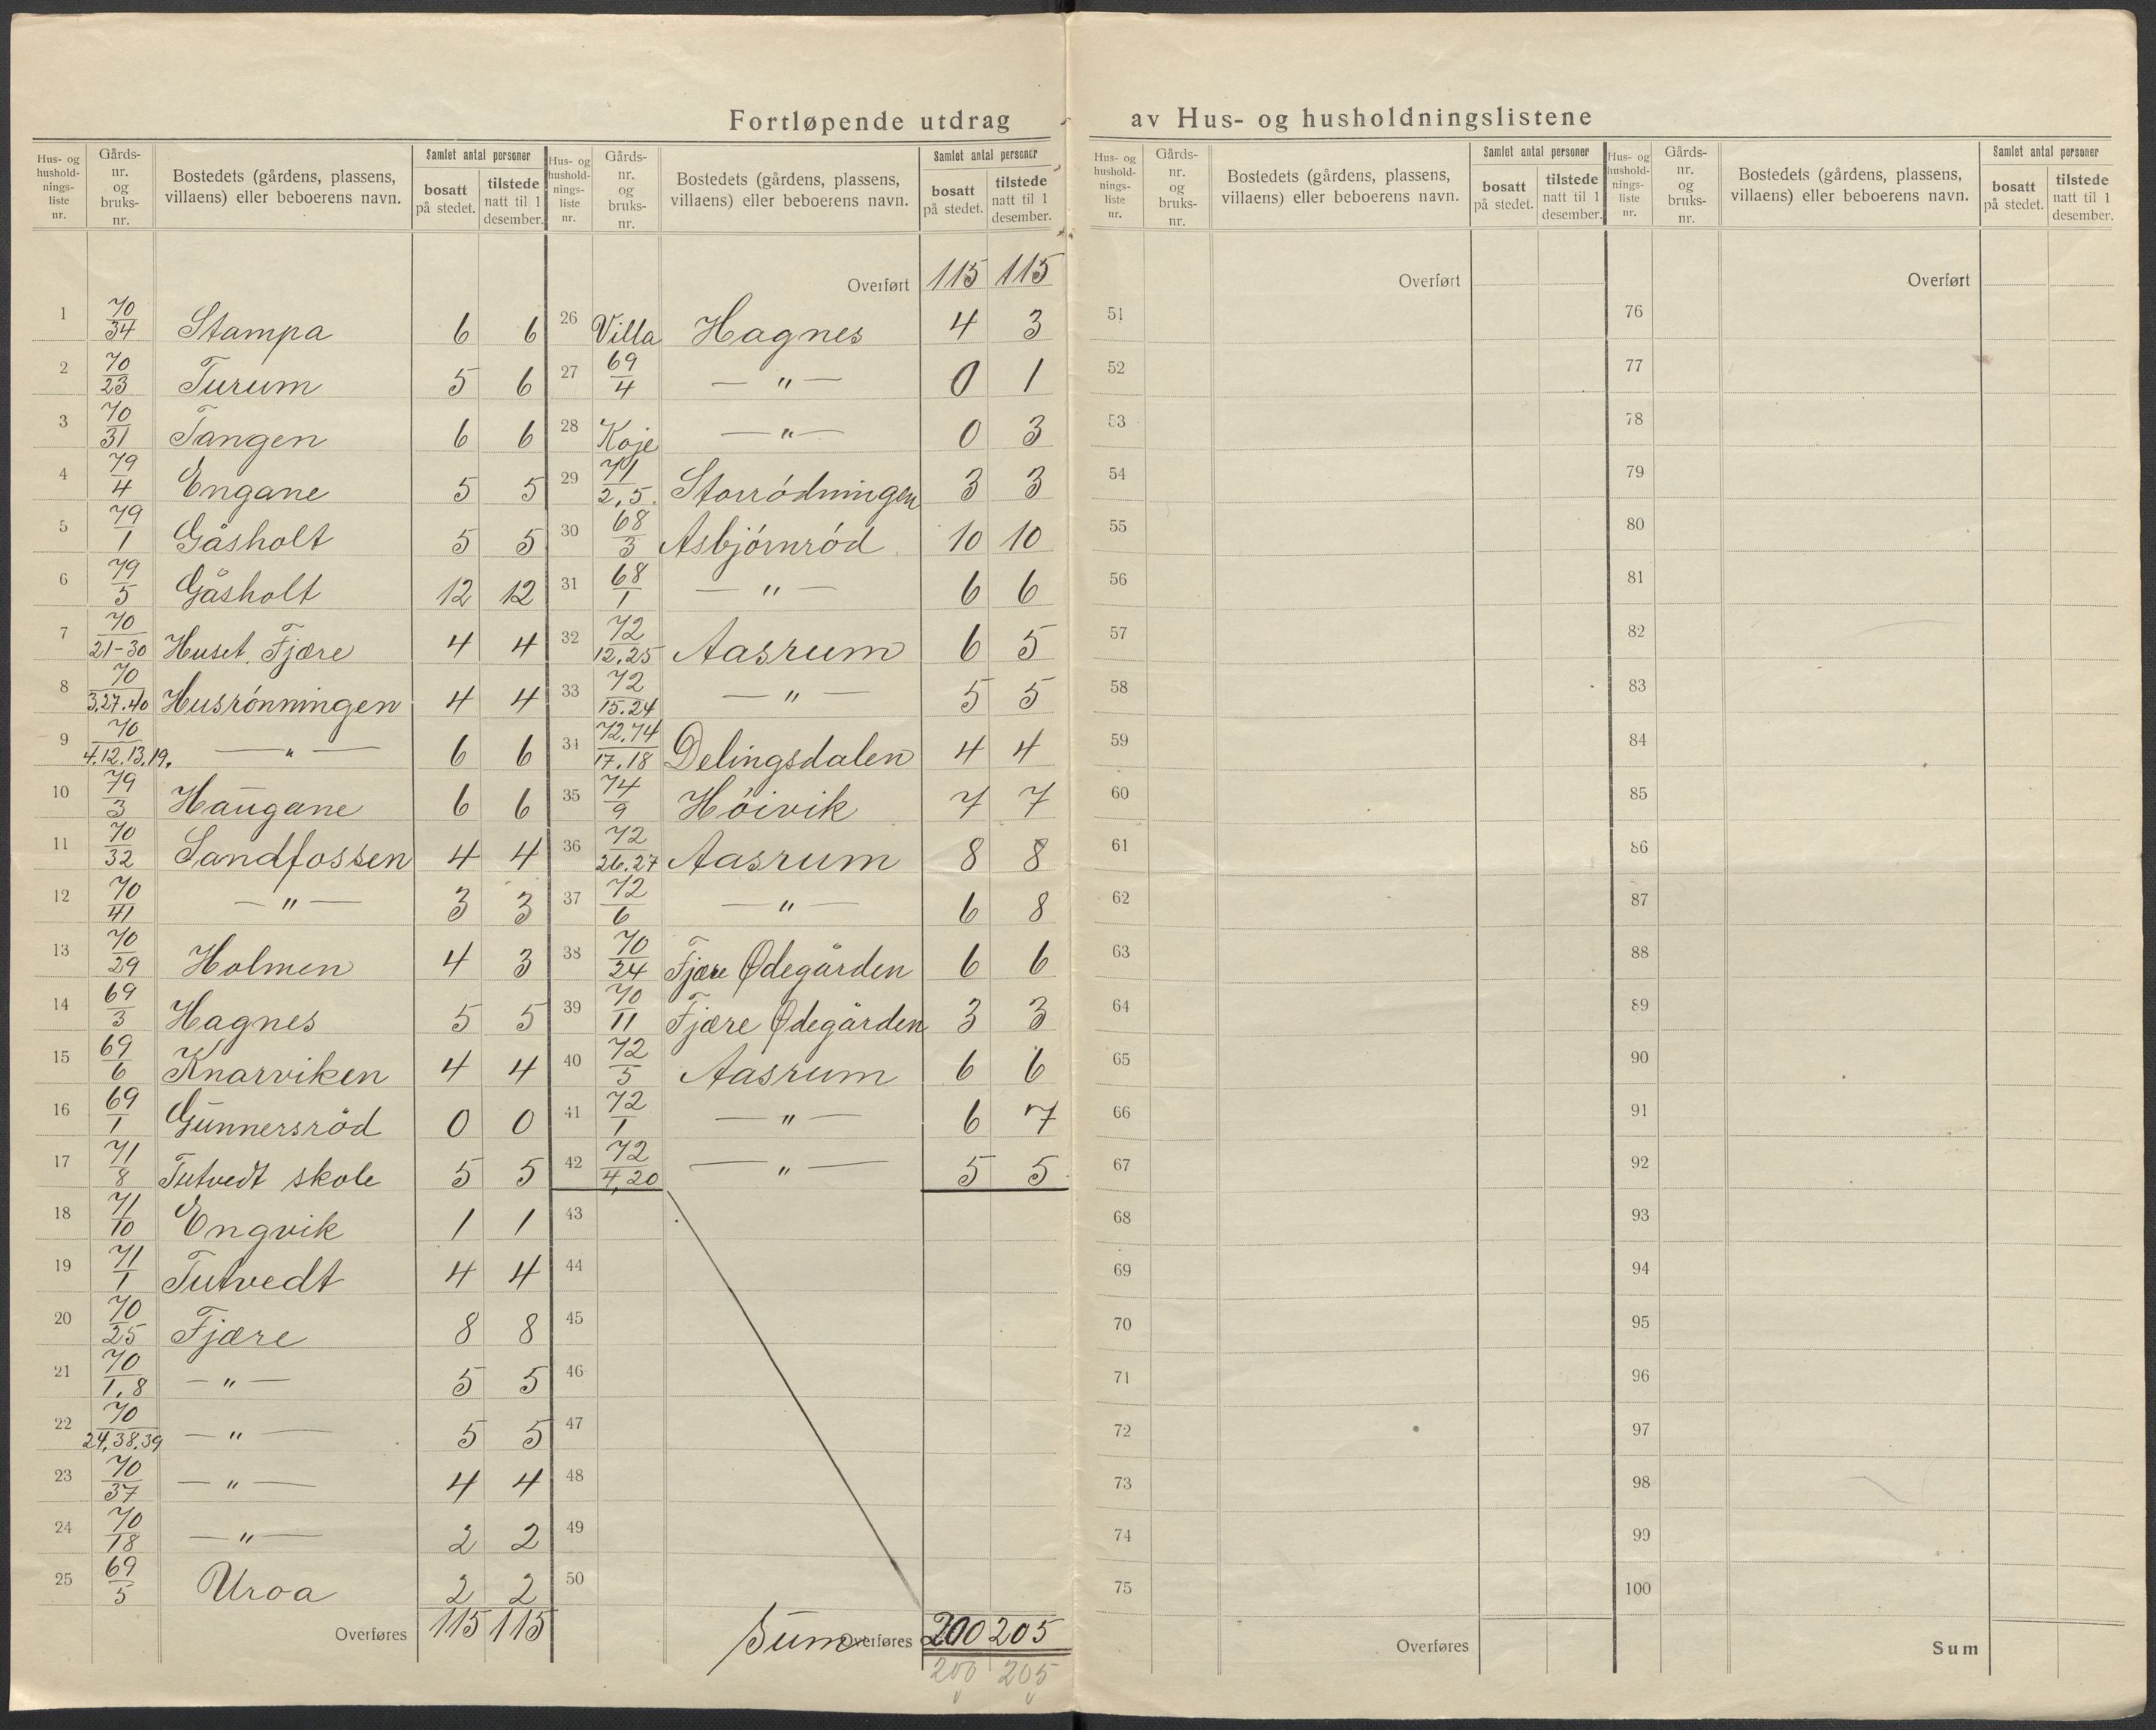 Fortløpende utdrag av Hus- og husholdningslistene
Hus- og husholdnings-liste nr. | Gårds-nr. og bruks-nr. | Bostedets (gårdens, plassens, villaens) eller beboerens navn. | Samlet antal personer | bosatt på stedet. | tilstede natt til 1 desember.
1 70/34 Stampa 6 6
2 70/23 Turum 5 6
3 70/31 Tangen 6 6
4 79/4 Engane 5 5
5 79/1 Gåsholt 5 5
6 79/5 Gåsholt 12 12
7 70/21-30 Huset. Fjære 4 4
8 70/3.27.40 Husrønningen 4 4
9 70/4.12.13.19. — " — 6 6
10 79/3 Haugane 6 6
11 70/32 Sandfossen 4 4
12 70/41 — " — 3 3
13 70/29 Holmen 4 3
14 69/3 Hagnes 5 5
15 69/6 Knarviken 4 4
16 69/1 Gunnersrød 0 0
17 71/8 Tutvedt skole 5 5
18 71/10 Engvik 1 1
19 71/1 Tutvedt 4 4
20 70/25 Fjære 8 8
21 70/1.8 — " — 5 5
22 70/24.38.39 — " — 5 5
23 70/37 — " — 4 4
24 70/18 — " — 2 2
25 69/5 Uroa 2 2
Overføres 115 115
Hus- og husholdnings-liste nr. | Gårds-nr. og bruks-nr. | Bostedets (gårdens, plassens, villaens) eller beboerens navn. | Samlet antal personer | bosatt på stedet. | tilstede natt til 1 desember.
Overført 115 115
26 Villa Hagnes 4 3
27 69/4 — " — 0 1
28 Koje — " — 0 3
29 71/2,5. Storrødningen 3 3
30 68/3 Asbjørnrød 10 10
31 68/1 — " — 6 6
32 72/12.25 Aasrum 6 5
33 72/15.24 — " — 5 5
34 72.74/17.18 Delingsdalen 4 4
35 74/9 Høivik 7 7
36 72/26.27 Aasrum 8 8
37 72/6 — " — 6 8
38 70/24 Fjære Ødegården 6 6
39 70/11 Fjære Ødegården 3 3
40 72/5 Aasrum 6 6
41 72/1 — " — 6 7
42 72/4,20 — " — 5 5
43
44
45
46
47
48
49
50
Sum Overføres 200 205
200 205
Hus- og husholdnings-liste nr. | Gårds-nr. og bruks-nr. | Bostedets (gårdens, plassens, villaens) eller beboerens navn. | Samlet antal personer | bosatt på stedet. | tilstede natt til 1 desember.
Overført
51
52
53
54
55
56
57
58
59
60
61
62
63
64
65
66
67
68
69
70
71
72
73
74
75
Overføres
Hus- og husholdnings-liste nr. | Gårds-nr. og bruks-nr. | Bostedets (gårdens, plassens, villaens) eller beboerens navn. | Samlet antal personer | bosatt på stedet. | tilstede natt til 1 desember.
Overført
76
77
78
79
80
81
82
83
84
85
86
87
88
89
90
91
92
93
94
95
96
97
98
99
100
Sum